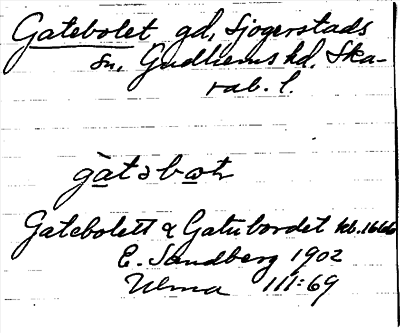 Gatebolet gd, Sjogerstads
sn, Gudhems hd. Ska-
rab. l.
gàtəbωtr
Gatebolett & Gatubordet kb. 1666
E. Sandberg 1902
Ulma 111:69